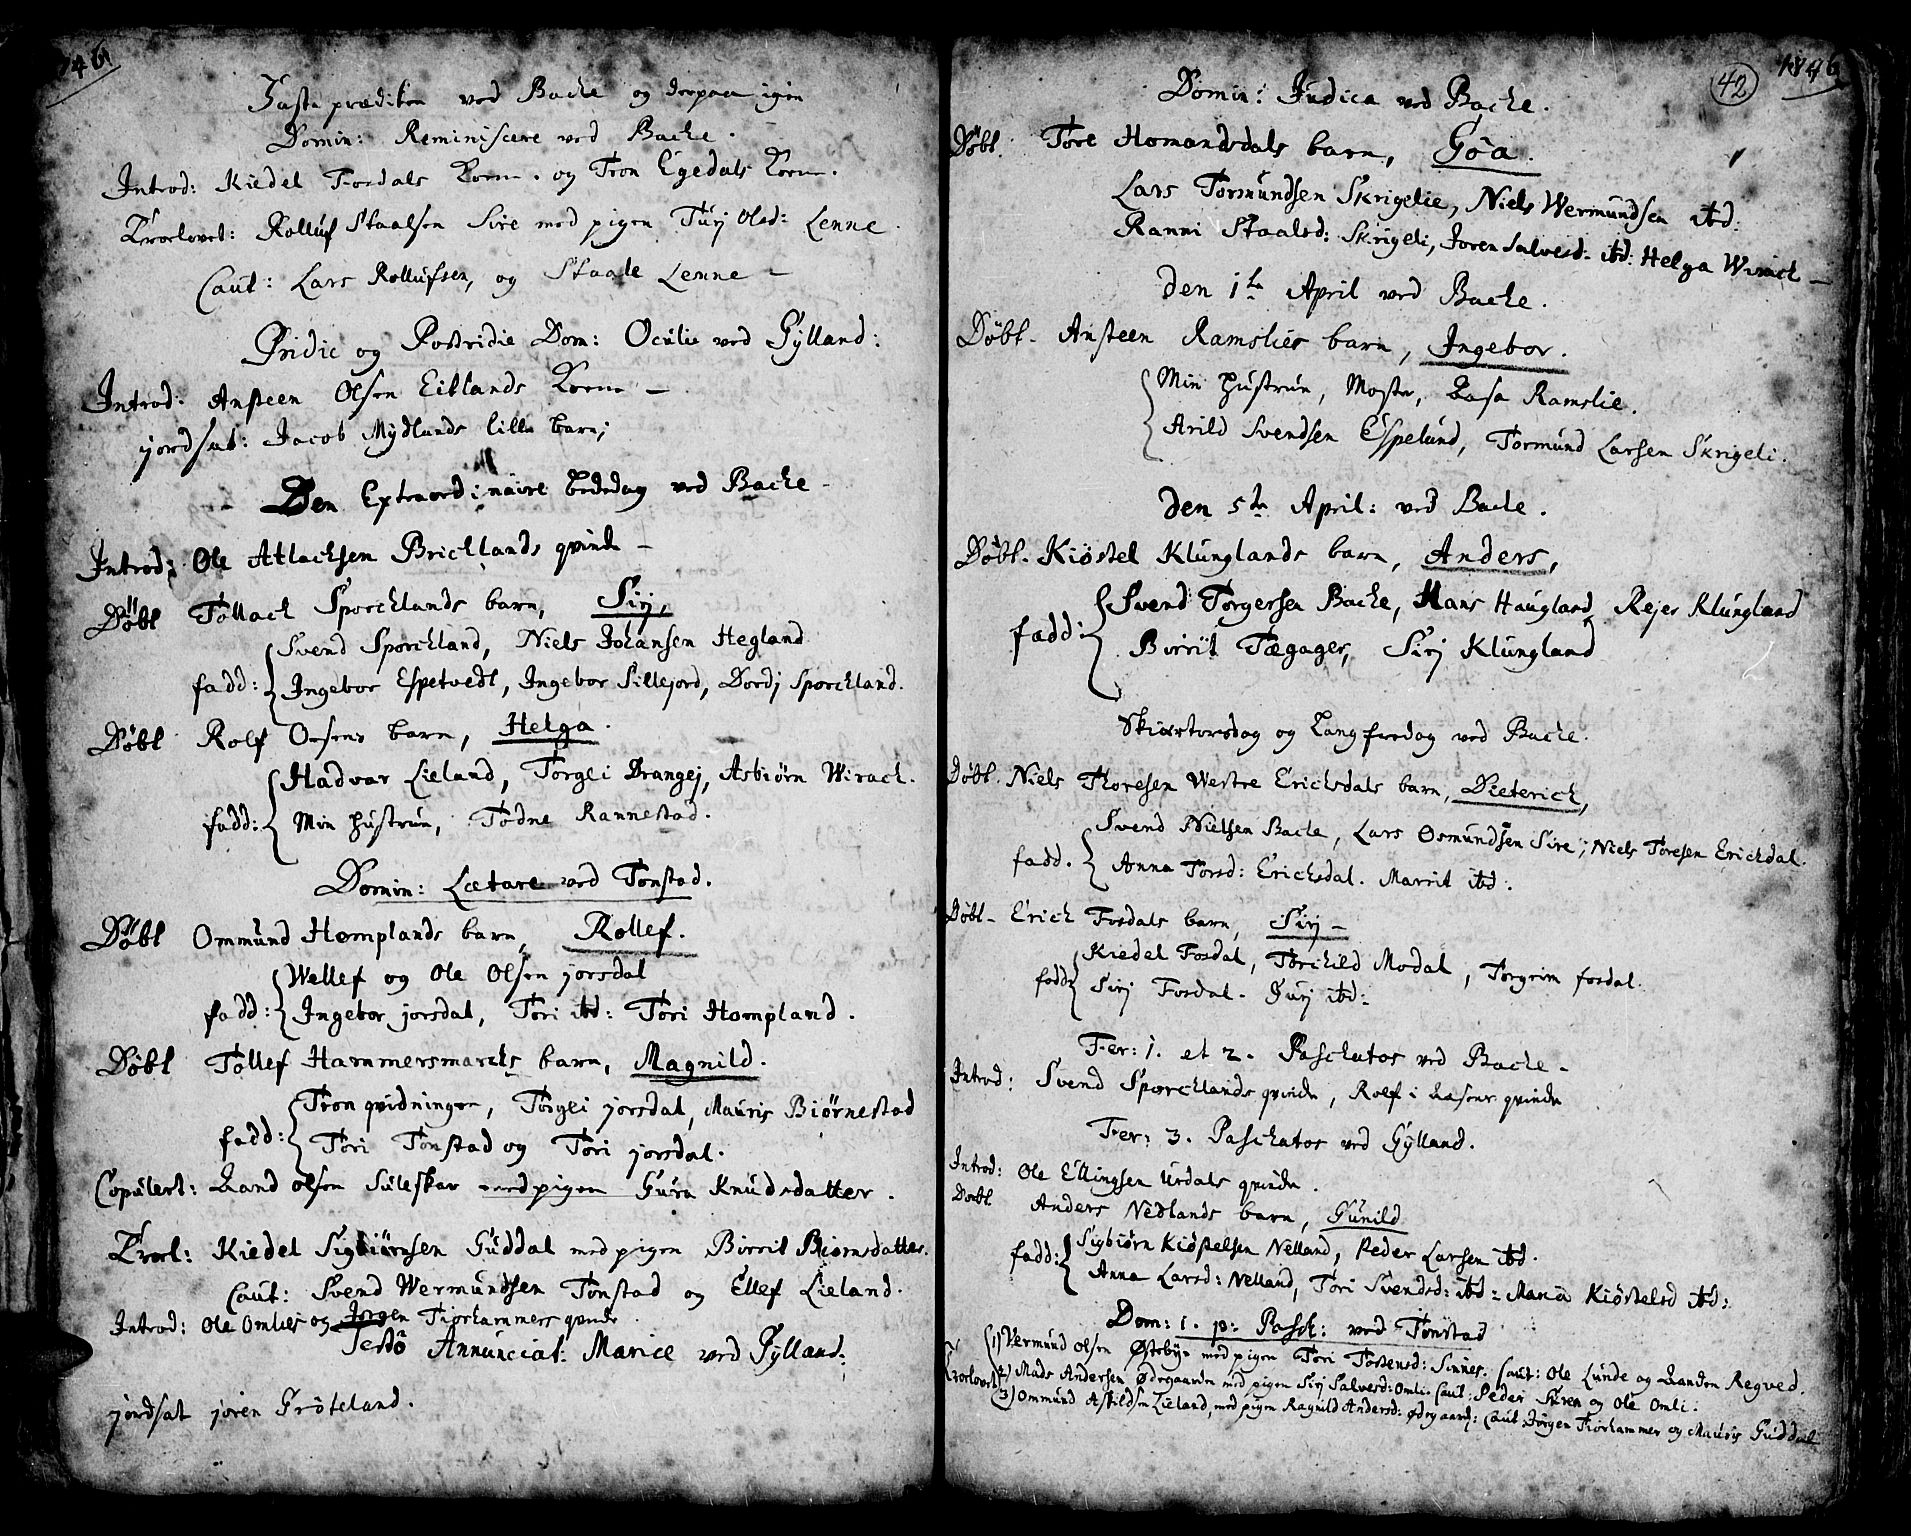 1746
Faste prædiken ved Bache og derpaa igien
Domin: Reminiscere ved Bache.
Introd: Kiedel Fosdals Kone. og Tron Egedals Kone.
Troelovet: Rolluf Staalsen Sire med pigen Turj Olsd: Lenne.
Caut: Lars Rollufsen, og Staale Lenne -
Pridie og Postridie Dom: Oculie ved Gylland:
Introd: Ansteen Olsen Eiklands Kone -
jordsat: Jacob Mydlands lille barn;
Den Extraordinaire bededag ved Bache -
Introd: Ole Atlachsen Brichlands qvinde -
Döbt Tollach Sporcklands barn, Sirj,
Svend Sporckland, Niels Johansen Hegland
fadd: Ingebor Espetvedt, Ingebor Sillejord, Dordj Sporckland.
Döbt Rolf Oesens barn, Helga.
Hadvar Lieland, Torgei Drangej, Asbiörn Wirach.
fadd: Min hustrue, Todne Rannestad.
Domin: Lætare ved Tonstad.
Döbt Ommund Homplands barn, Rollef.
Wellef og Ole Olsen josdal
fadd: Ingebor josdal, Tori ibd: Tori Hompland.
Döbt Tollef Hammersmarchs barn, Magnild.
Tron qvidninger, Torgei josdal, Mauris Biörnestad
fadd: Tori Tonstad og Tori josdal.
Copulert: Rand olsen Suleskar med pigen Guro Knudsdatter.
Troel: Kiedel Sigbiörnsen Guddal med pigen Birrit Biörnsdatter.
Caut: Svend Wermundsen Tonstad og Ellef Lieland.
Introd: Ole Omlies og Jorgen Fiorhammers qvinde
Festo Annunciat: Mariæ ved Gylland:
jordsat joren Gröteland.
42
1746
Domin: Judica ved Bache.
Döbt. Tore Homandsdals barn, Göa.
Lars Tormundsen Skrigelie, Niels Wermundsen ibd:
Ranni Staalsd: Skrigeli, Joren Salvesd: ibd: Helga Wirach -
den 1te April ved Bache.
Döbt - Ansteen Ramslies barn, Ingebor.
Min hustrue, Moster, Aasa Ramslie.
Arild Svendsen Espelund, Tormund Larsen Skrigeli.
den 5te April: ved Bache.
Döbt - Kiöstel Klunglands barn, Anders,
Svend Torgersen Bache, Hans Haugland, Rejer Klungland
fadd: Birrit Tægager, Sirj Klungland
Skiærtorsdag og Langfredag ved Bache.
Döbt. Niels Thoresen Westre Erichsdals barn, Dieterich,
Svend Nielsen Bache, Lars Osmundsen Sire, Niels Toresen Erichdal.
fadd. Anna Torsd: Erichsdal. Marrit ibd:
Döbt - Erich Fosdals barn, Sirj -
Kiedel Fosdal, Torchild Modal, Torgrim fosdal.
fadd: Sirj Fosdal. Turj ibd:
Fer: 1. et 2. Paschatos ved Bache -
Introd: Svend Sporcklands qvinde, Rolf i Aasens qvinde
Fer: 3. Paschatos ved Gylland.
Introd: Ole Ellingsen Urdals qvinde.
Döbt Anders Nedlands barn, Gunild
Sigbiörn Kiöstelsen Nelland, Peder Larsen ibd.
fadd: Anna Larsd: Nelland, Tori Svendsd: ibd: Maria Kiöstelsd ibd:
Dom: 1. p: Pasch: ved Tonstad
1) Vermund olsen Östebye med pigen Tori Tostensd: Sinnes. Caut: Ole Lunde og Aanden Regved.
Troelovet 2) Mads Andersen Ödegaarden med pigen Sirj Salvesd: Omli. Caut: Peder Suren og Ole Omli:
3) Ommund Askildsen Lieland, med pigen Ragnild Andersd: Ödegaard: Caut Jörgen Fiorhammer og Mauris Guddal